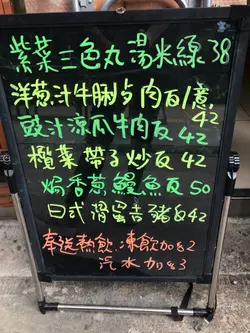 紫菜三色丸湯米線38
洋葱汁牛脷与肉瓦/意
42
豉汁涼瓜牛肉瓦42
欖菜帶子炒瓦42
焗香葱鰻魚瓦50
日式滑蛋吉豬瓦42
奉送熱飲凍飲加$2
汽水加$3